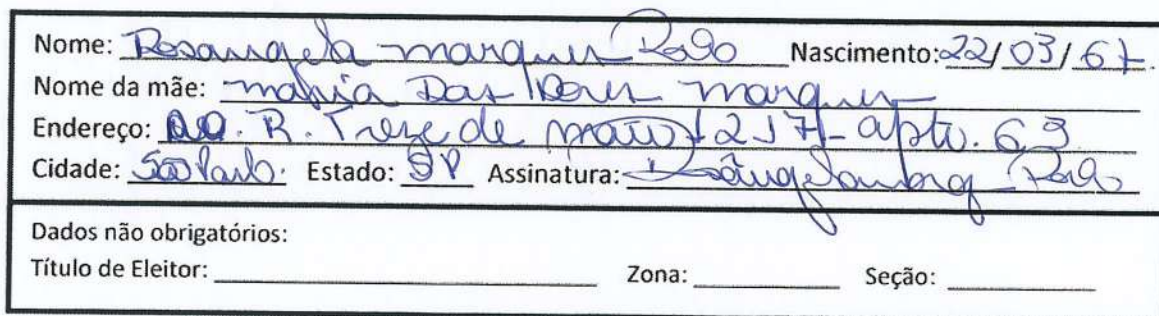 Nome: Rosangela marques Nascimento: 22/03/67.
Nome da mãe: maria Das Dores marques
Endereço: R. Treze de maio 1217 - apto. 63
Cidade: São Paulo. Estado: SP Assinatura:
Dados não obrigatórios:
Título de Eleitor: Zona: Seção: